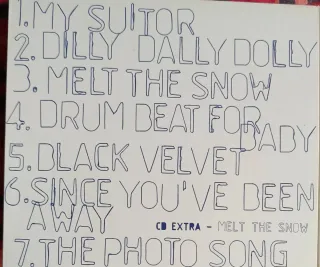 1. MY SUITOR
2. DILLY DALLY DOLLY
3. MELT THE SNOW
4. DRUM BEAT FOR
BABY
5. BLACK VELVET
6. SINCE YOU'VE BEEN
AWAY
CD EXTRA - MELT THE SNOW
7. THE PHOTO SONG